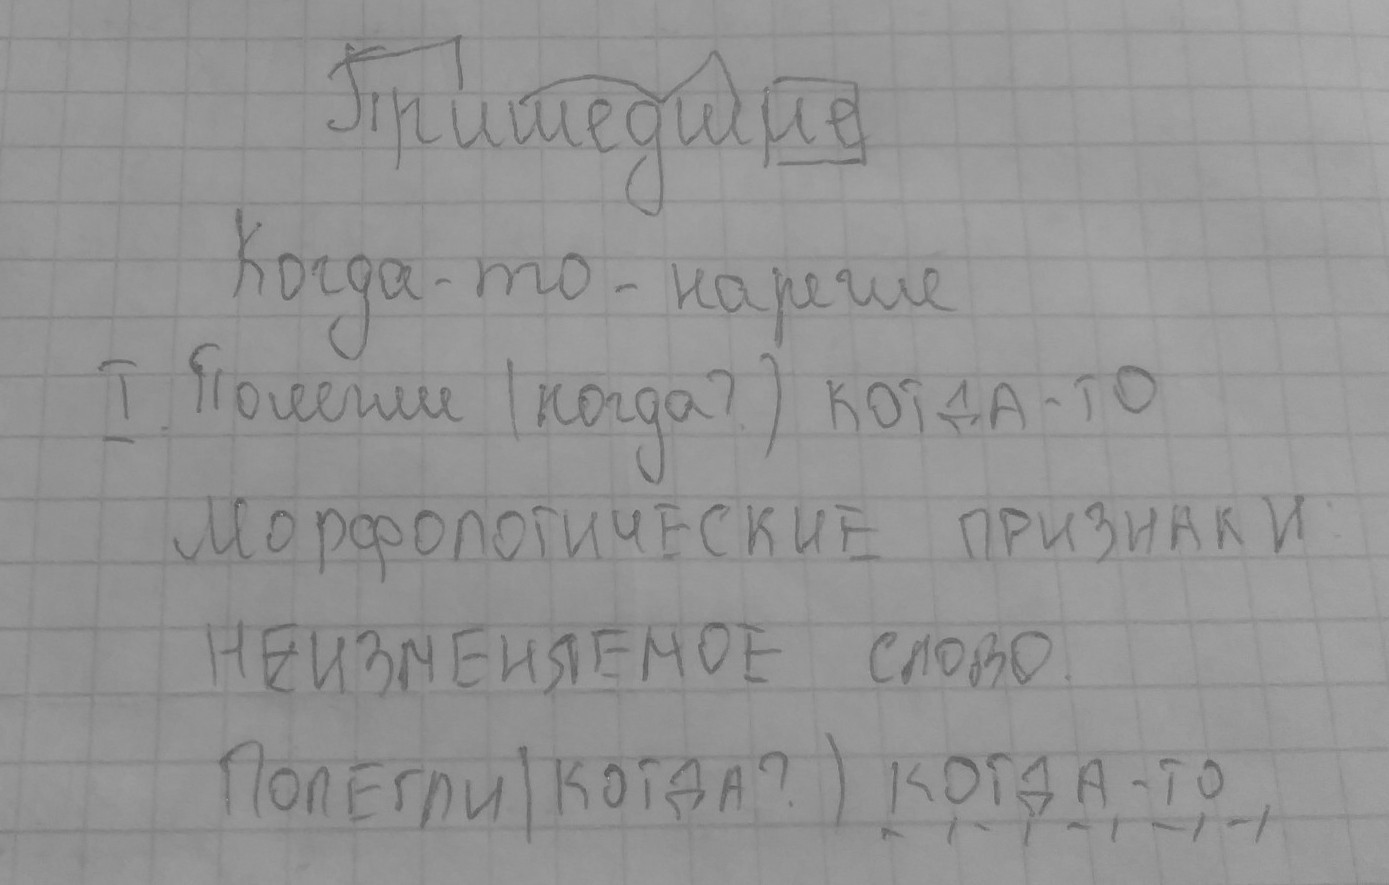 Пришедшие
Когда-то - наречие
I. Полегли (когда?) КОГДА-ТО
МОРФОЛОГИЧЕСКИЕ ПРИЗНАКИ:
НЕИЗМЕНЯЕМОЕ СЛОВО.
ПОЛЕГЛИ (КОГДА?) КОГДА-ТО